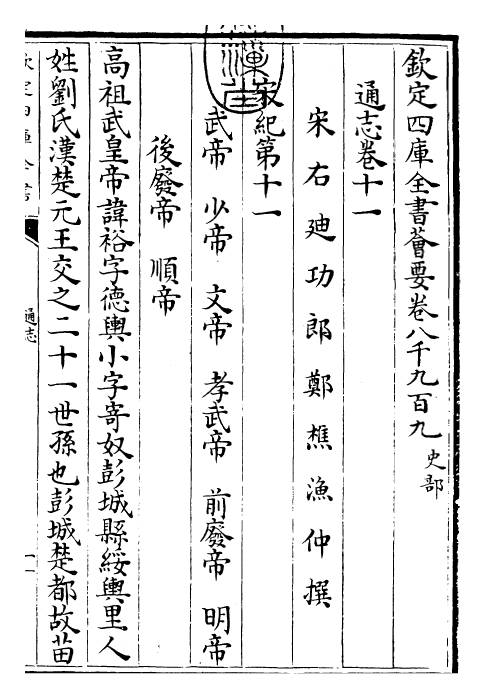 欽定四庫全書薈要卷八千九百九 史部
通志卷十一
宋右迪功郎鄭樵漁仲撰
宋紀第十一
武帝 少帝 文帝 孝武帝 前廢帝 明帝
後廢帝 順帝
高祖武皇帝諱裕字德輿小字寄奴彭城縣綏輿里人
姓劉氏漢楚元王交之二十一世孫也彭城楚都故苗
欽定四庫全書
通志
一